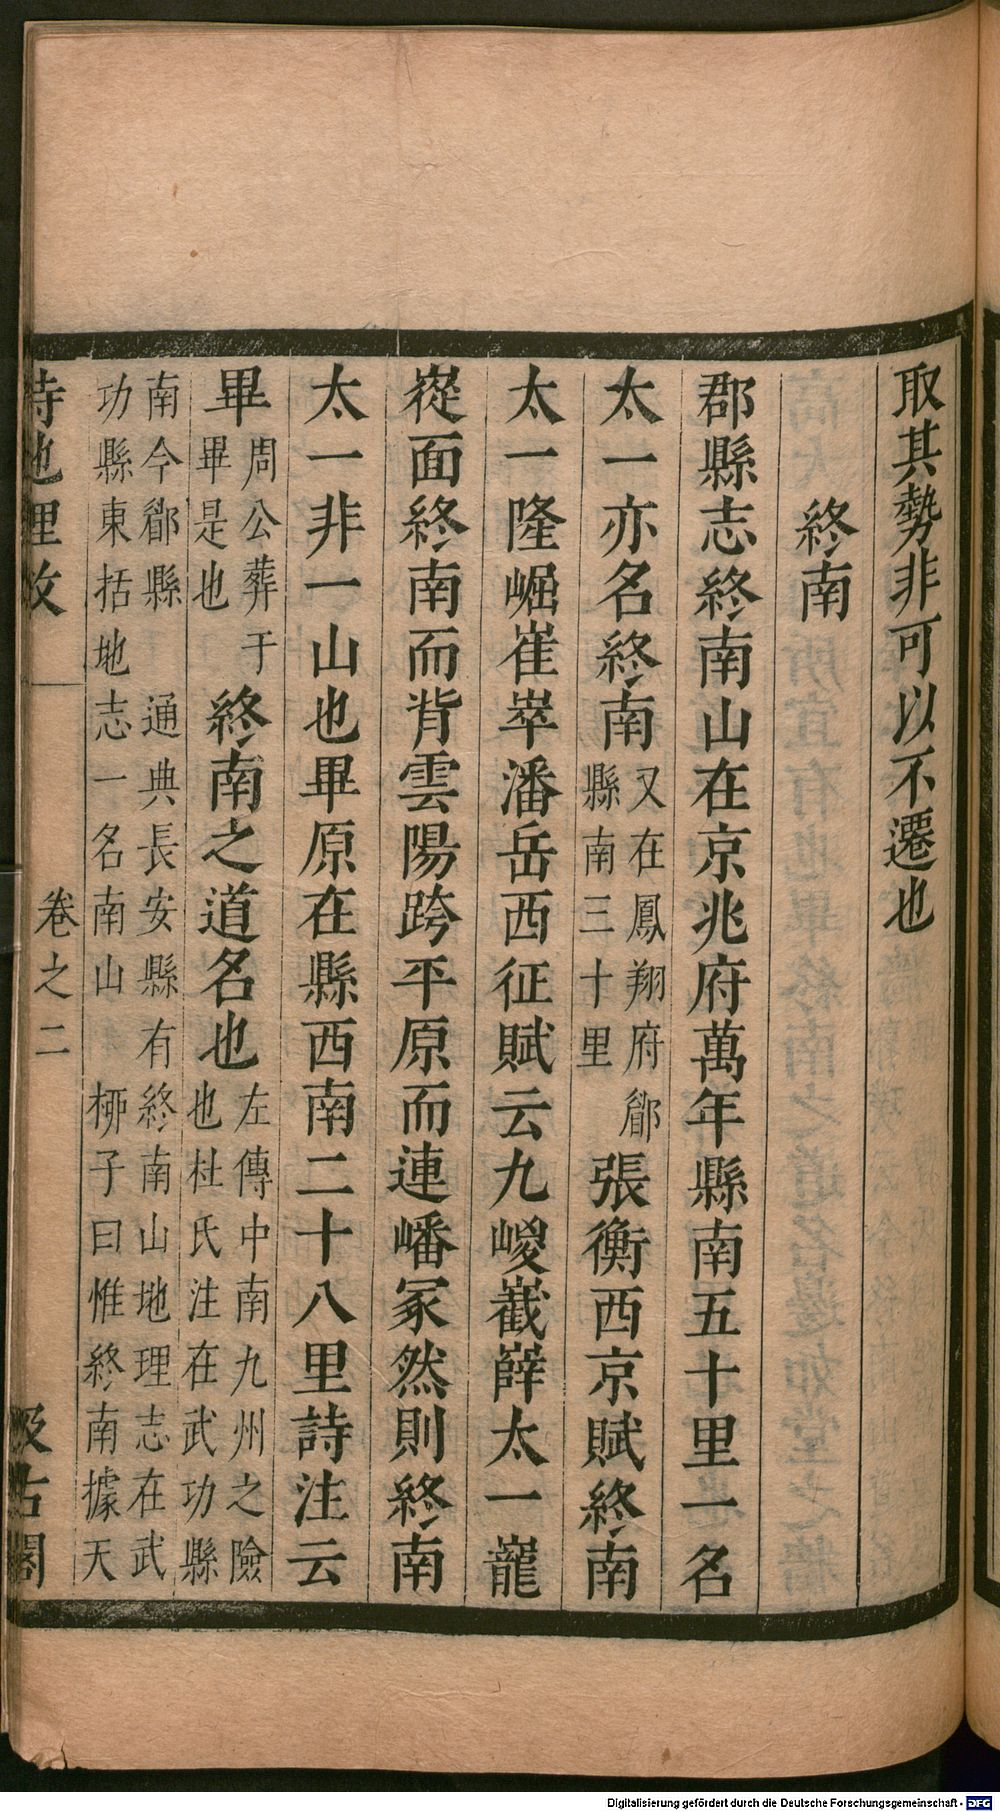 取其勢非可以不遷也
終南
郡縣志終南山在京兆府萬年縣南五十里一名
太一亦名終南又在鳳翔府郿縣南三十里張衡西京賦終南
太一隆崛崔崒潘岳西征賦云九嵕嶻嶭太一巃
嵸面終南而背雲陽跨平原而連嶓冢然則終南
太一非一山也畢原在縣西南二十八里詩注云
畢周公葬于畢是也終南之道名也左傳中南九州之險也杜氏注在武功縣
南今郿縣通典長安縣有終南山地理志在武功縣東括地志一名南山柳子曰惟終南據天
詩地理攷
卷之二
汲古閣
Digitalisierung gefördert durch die Deutsche Forschungsgemeinschaft - DFG